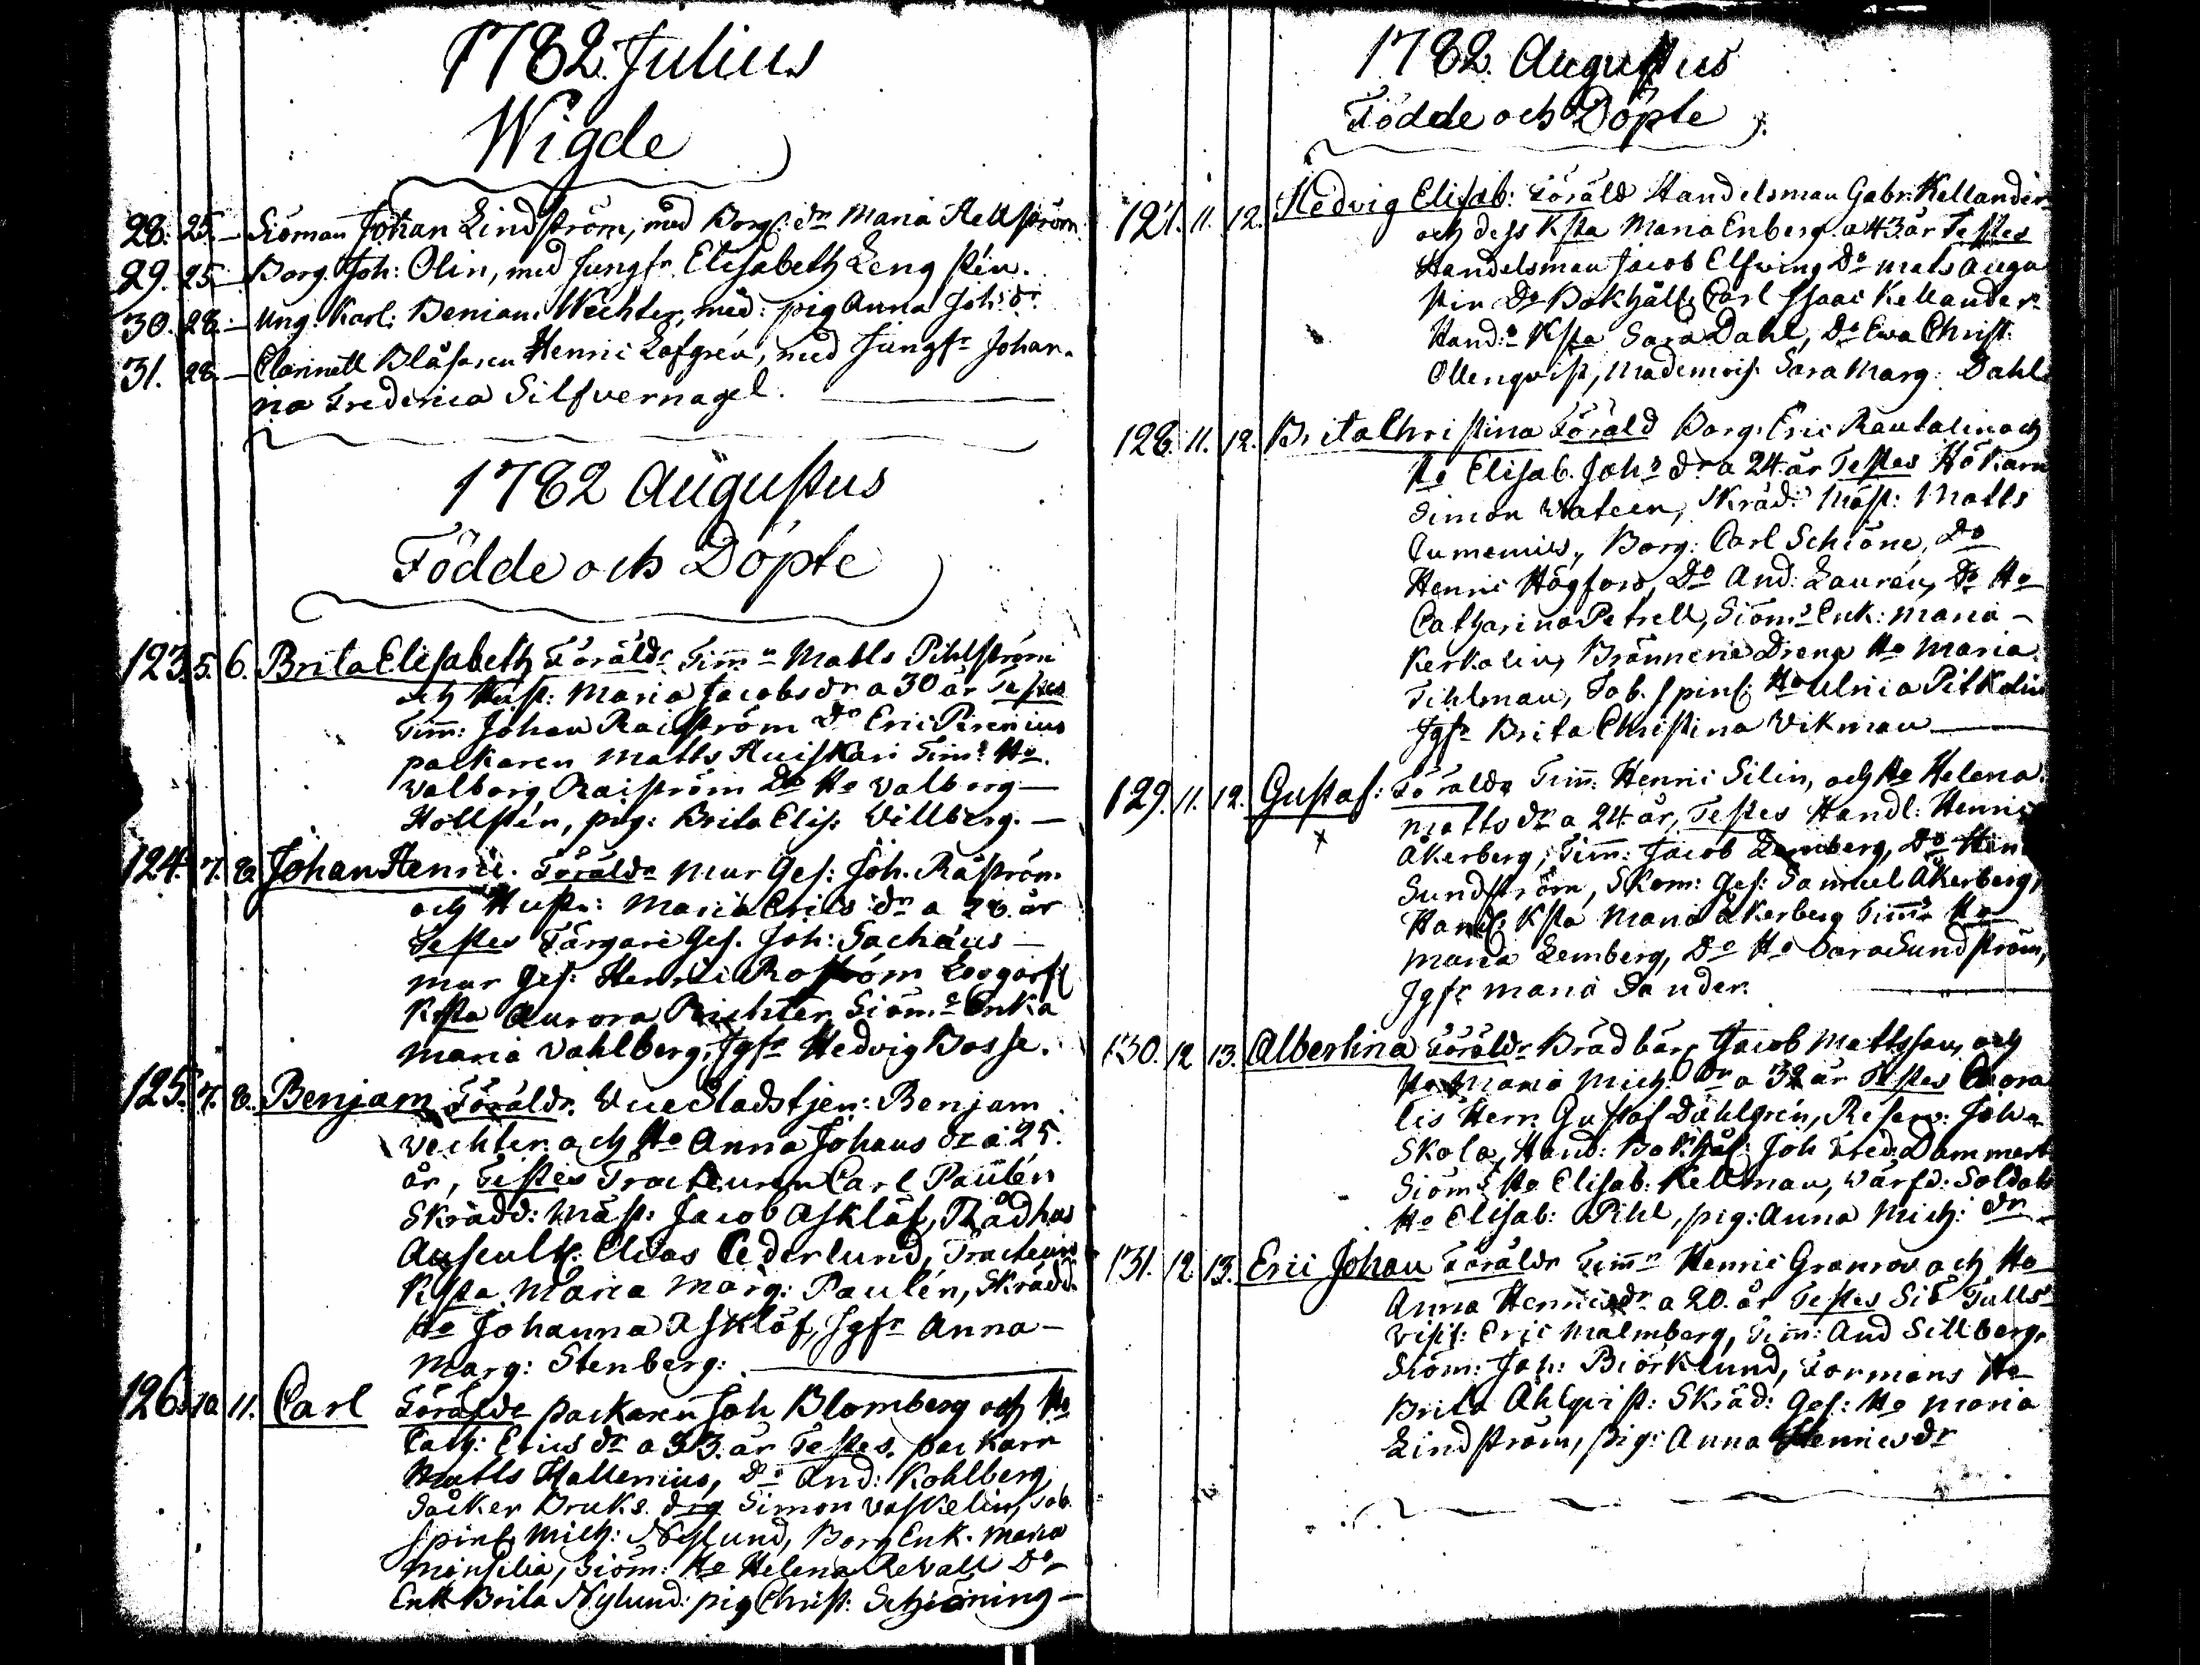 1782. Julius
Wigde
28. 25. – Siöman Johan Lindström, med Borg: dr Maria Hellström
29. 25 – Borg. Joh: Olin, med Jungfr. Elisabeth Lengstén.
30. 28. – Ung: Karl: Beniam: Wechter, med: pig Anna Joh:s dr
31. 28. – Clarinett Blåsaren Henric Löfgrén, med Jungfr Johan-
na Frederica Silfvernagel.
1782 Augustus
Födde och Döpte
123. 5. 6. Brita Elisabeth Föräldr Timn Matts Pihlström
och Hust: Maria Jacobs dr a 30 år Testes
Timm: Johan Raiström Do Eric Pirenius
packaren Matts Huiskari Tim:s Ho
Valborg Raiström Do Ho Valborg –
Hollstén, pig: Brita Elis: Villberg. –
124. 7. 8. Johan Henric. Föräldr Mur Ges: Joh. Råström
och Hustr: Maria Erics dr a 28. år
Testes Färgare Ges. Joh: Sachæus –
mur Ges: Henric Roström
Ksta Aurora Richter Siöm:s Enka
Maria Vahlberg, Jgfr Hedvig Bosse.
125. 7. 8. Benjam Föräldr. Vice Stadstjen: Benjam
Vechter och Ho Anna Johans dr a 25.
år, Testes Tracteuren Carl Paulén
Skrädd: Mäst: Jacob Asklöf, Rådhus
Auscult: Elias Cederlund, Tracteurs
Ksta Maria Marg: Paulén, Skrädd
Ho Johanna Asklöf, Jgfr Anna –
Marg: Stenberg:
126. 10 11. Carl Föräldr packaren Joh Blomberg och Ho
Cath: Erics dr a 33. år Testes. packarn
Matts Hallenius, Do And: Kohlberg
Såcker Bruks. drg Simon Vaskelin, Tob.
spinl Mich: Nylund, Borg Enk. Maria
Monselia, Siöm: Ho Helena Revall Do
Enk Brita Nylund: pig Christ: Schiöning –
1782. Augustus
Födde och Döpte
127. 11. 12. Hedvig Elisab: Föräld Handelsman Gabr: Kellander
och dess Ksta Maria Enberg. a 43. år Testes
Handelsman Jacob Elfving Do Mats Augu
stin Do Bokhåll: Carl Isaac Kellander
Hand:s Ksta Sara Dahl, Do Ewa Christ:
Ollenqvist, Mademois. Sara Marg: Dahl.
128. 11. 12. Brita Christina Föräld Borg: Eric Rautalin och
Ho Elisab. Joh:s dr a 24. år Testes Hökarn
Simon Vateen, Skräd: Mäst: Matts
Cumenius, Borg: Carl Schiöne, Do
Henric Högfors, Do And: Laurén, Do Ho
Catharina Petrell, Siöm:s Enk: Maria –
Kerkolin, Brännerie Dreng Ho Maria
Tihlman, Tob. spinl: Ho Ulrica Pitkolin
Jgfr Brita Christina Vikman
129. 11. 12. Gustaf: Föräldr Timm: Henric Silin, och Ho Helena
Matts dr a 24. år, Testes Handl: Henric
Åkerberg, Timm: Jacob Lemberg, Do Hen
Sundström, Skom: Ges: Samuel Åkerberg,
Handl: Ksta Maria Åkerberg Timm:s Ho
Maria Lemberg, Do Ho Sara Sundström,
Jgfr Maria Sander.
130. 12 13. Albertina Föräldr Brädbär: Jacob Mattsson, och
Ho Maria Mich: dr a 32 år Testes Chora
lis Herr Gustaf Dahlgrén, Reserv: Joh
Skola, Hand: Bokhål: Joh Fred: Dammert
Siöm:s Ho Elisab: Kellman, Värfd: Soldats
Ho Elisab: Pihl, pig: Anna Mich: dr
131. 12 13. Eric Johan Föräldr Timn Henric Granros och Ho
Anna Henrics dr a 20. år Testes Siö Tulls
Visit: Eric Malmberg, Timm: And Sillberg,
Siöm: Joh: Biörklund, Formans Ho
Brita Ahlqvist: Skräd: Ges: Ho Maria
Lindström, pig: Anna Henrics dr